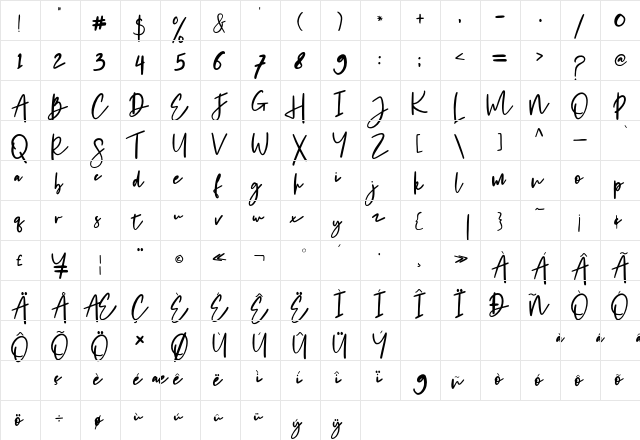 ! " # $ % & ' ( ) * + , - . / 0
1 2 3 4 5 6 7 8 9 : ; < = > ? @
A B C D E F G H I J K L M N O P
Q R S T U V W X Y Z [ \ ] ^ _ `
a b c d e f g h i j k l m n o p
q r s t u v w x y z { | } ~ ¡ ¢
£ ¥ ¦ ¨ © « ¬ ° ´ · ¸ » À Á Â Ã
Ä Å Æ Ç È É Ê Ë Ì Í Î Ï Ð Ñ Ò Ó
Ô Õ Ö × Ø Ù Ú Û Ü Ý
ç è é ê ë ì í î ï ñ ò ó ô õ
ö ÷ ø ù ú û ü ý ÿ